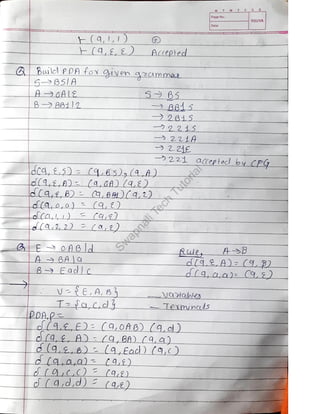 M T W T F S S
Page No.:
Date:
YOUVA
⊢ (q, 1, 1)
⊢ (q, ε, ε) Accepted
Q Build PDA for given grammar
S → BS|A
A → 0A|ε S → BS
B → BB1|2 → BB1S
→ 2B1S
→ 221S
→ 221A
→ 221ε
→ 221 accepted by CFG
δ(q, ε, S) = (q, BS), (q, A)
δ(q, ε, A) = (q, 0A) (q, ε)
δ(q, ε, B) = (q, BB1) (q, 2)
δ(q, 0, 0) = (q, ε)
δ(q, 1, 1) = (q, ε)
δ(q, 2, 2) = (q, ε)
Swapnali Tech Tutorial
Q E → 0AB|d Rule, A → B
A → BA|a δ(q, ε, A) = (q, B)
B → Ead|c δ(q, a, a) = (q, ε)
→ V = {E, A, B} — Variables
T = {a, c, d} — Terminals
PDA, P =
δ(q, ε, E) = (q, 0AB) (q, d)
δ(q, ε, A) = (q, BA) (q, a)
δ(q, ε, B) = (q, Ead) (q, c)
δ(q, a, a) = (q, ε)
δ(q, c, c) = (q, ε)
δ(q, d, d) = (q, ε)